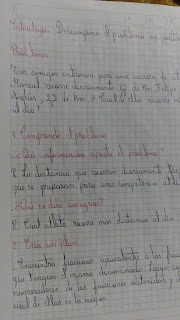 Estrategia: Descomponer el problema en partes
Problema:
Tres amigos entrenan para una carrera de
Manuel recorre diariamente de Km, Felipe
Andrés, de Km. ¿Cuál de ellos recorre más
al día?
1. Comprende el problema
- ¿Qué información aporta el problema?
R. La distancia que recorren diariamente tres
que se preparan para una competencia
- ¿Qué se debe averiguar?
R. Cuál atleta recorre más distancia al día
2. Crea un plan
- Encuentra fracciones equivalentes a las
que tengan el mismo denominador. Luego,
numeradores de las fracciones obtenidas y
cual de ellas es la mayor